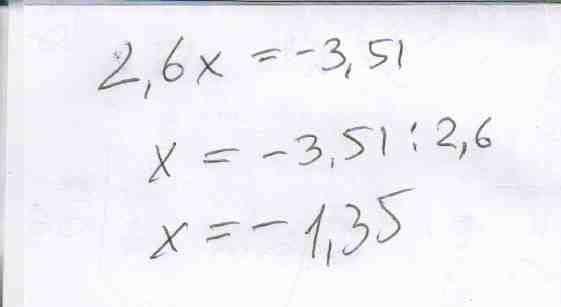 2,6x = -3,51
x = -3,51 : 2,6
x = - 1,35